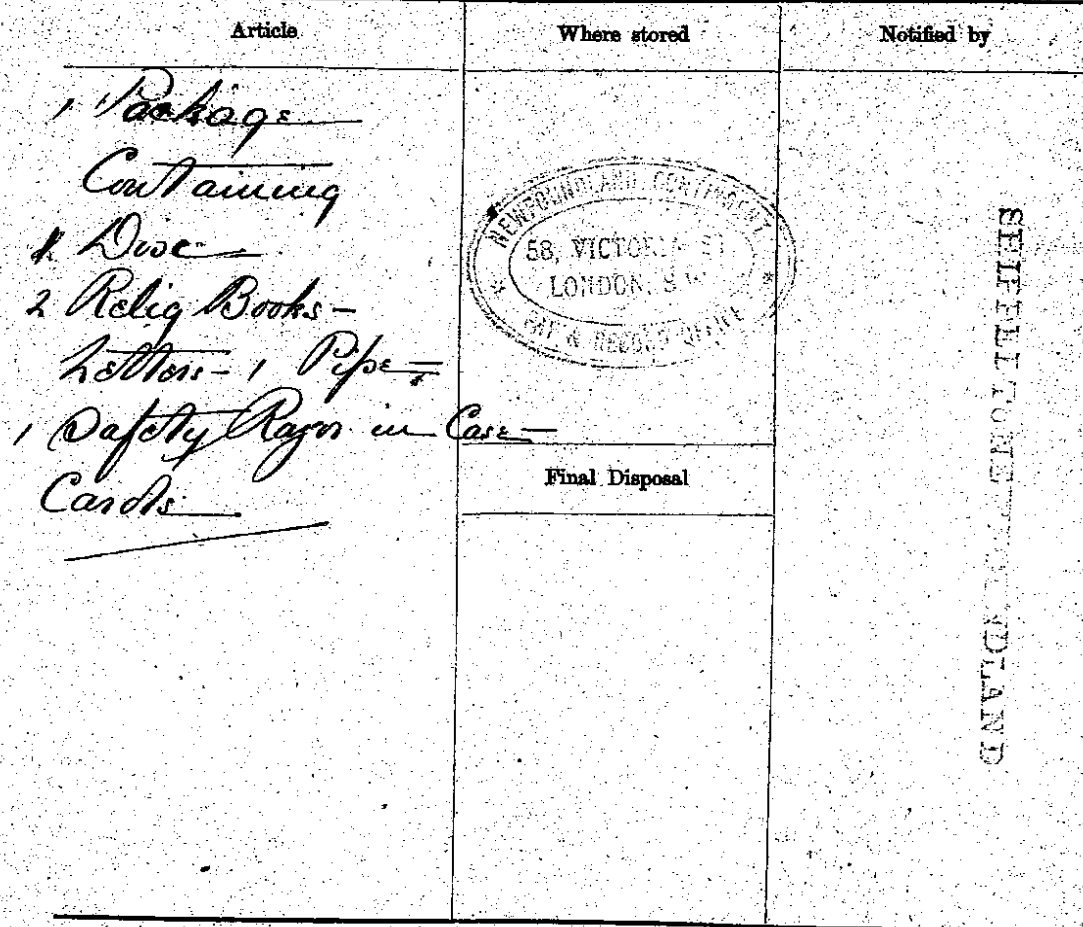 Article
Where stored
Notified by
1 Package
Containing
Disc
2 Relig Books -
Letters - 1 Pipe -
1 Safety Razor in Case -
Cards
NEWFOUNDLAND CONTINGENT
58, VICTORIA ST
LONDON, S.W.
PAY & RECORD OFFICE
Final Disposal